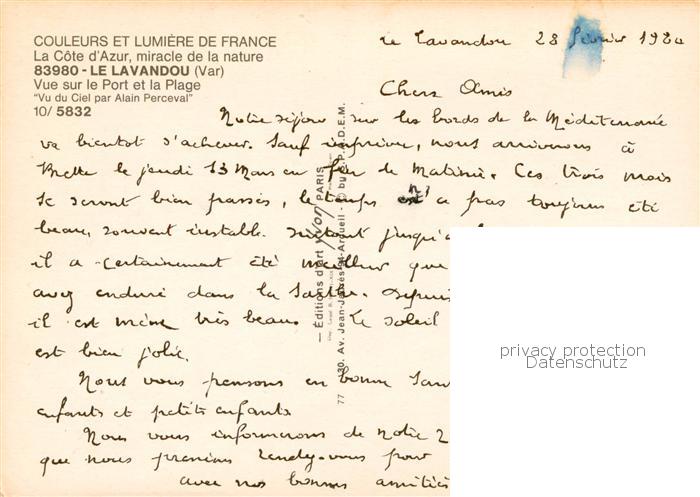 COULEURS ET LUMIÈRE DE FRANCE
La Côte d'Azur, miracle de la nature
83980 - LE LAVANDOU (Var)
Vue sur le Port et la Plage
"Vu du Ciel par Alain Perceval"
10/ 5832
le Lavandou 28 février 1980
Chers Amis
Notre séjour sur les bords de la Méditerranée
va bientôt s'achever. Sauf imprévu, nous arriverons à
le jeudi 13 Mars en fin de Matinée. Ces trois mois
se seront bien passés, le temps n'a pas toujours été
beau, souvent instable. Surtout jusqu'a
il a certainement été meilleur que
avez enduré dans la Sarthe. Depuis
il est même très beau. Le soleil
est bien jolie.
Nous vous pensons en bonne San
enfants et petits enfants
Nous vous informerons de notre
que nous prenions rendez-vous pour
avec nos bonnes amitiés
— Éditions d'art yvon PARIS
77 30, Av. Jean-Jaurès - Arcueil - © by S.P.A.D.E.M.
privacy protection
Datenschutz